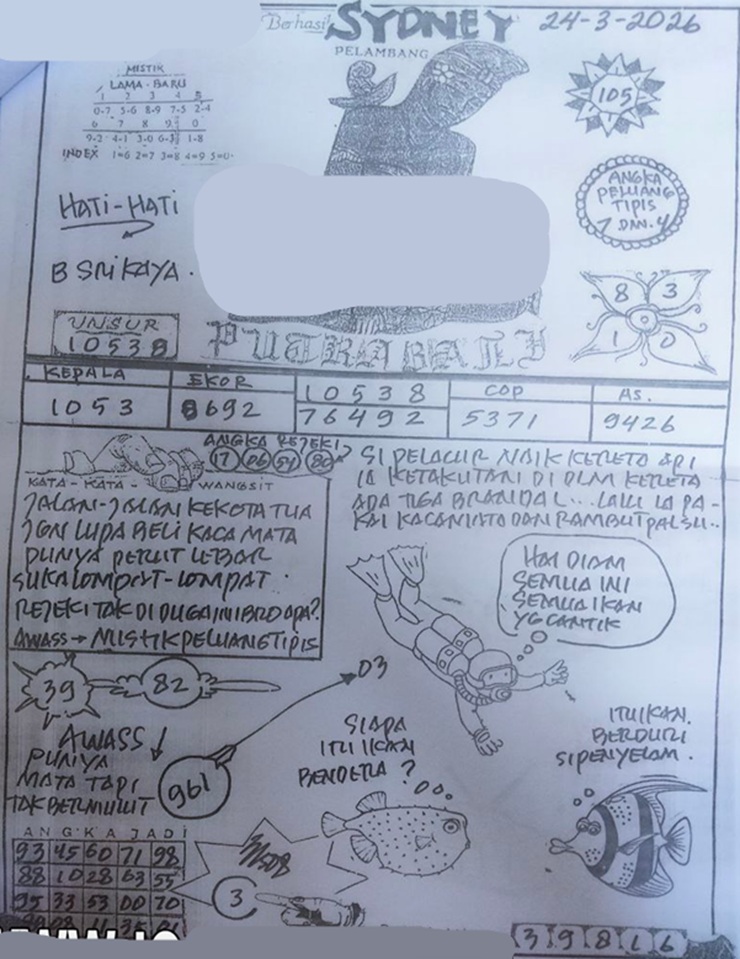 Berhasil SYDNEY 24-3-2026
PELAMBANG
MISTIK
LAMA - BARU
1 2 3 4 5
0-7 5-6 8-9 7-5 2-4
6 7 8 9 0
9-2 4-1 3-0 6-3 1-8
INDEX 1=6 2=7 3=8 4=9 5=0
105
ANGKA
PELUANG
TIPIS
7 DAN. 4
HATI-HATI
B SRIKAYA.
8 3
1 0
UNSUR
10538
PUTRA BALI
KEPALA
1053
EKOR
8692
10538
76492
COP
5371
AS.
9426
ANGKA REJEKI
17 06 54 80
KATA - KATA - WANGSIT
JALAN-JALAN KEKOTA TUA
JGN LUPA BELI KACA MATA
PUNYA PERUT LEBAR
SUKA LOMPAT-LOMPAT.
REJEKI TAK DI DUGA INI BRO APA?
AWASS → MISTIK PELUANG TIPIS
SI PELACUR NAIK KERETA API
IA KETAKUTAN DI DLM KERETA
ADA TIGA BRANDAL... LALU IA PA-
KAI KACAMATA DAN RAMBUT PALSU..
HAI DIAM
SEMUA INI
SEMUA IKAN
YG CANTIK
39 82
03
AWASS
PUNYA
MATA TAPI
TAK BERMULUT
961
SIAPA
ITU IKAN
BENDERA ?
ITU IKAN.
BERDURI
SI PENYELAM.
ANGKA JADI
93 45 60 71 98
88 10 28 63 55
95 33 53 00 70
3
3 9 8 1 6